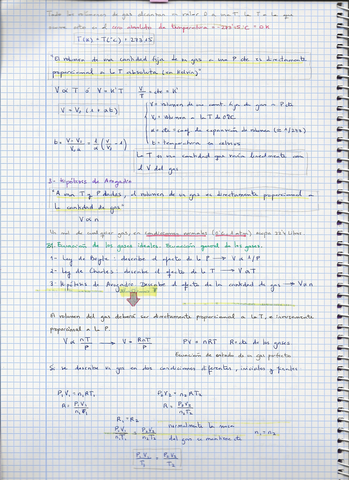 Todos los volúmenes de gas alcanzan un valor 0 a una T. La T a la que
ocurre esto es el cero absoluto de temperatura = -273'15 ºC = 0 K
T(K) = T(ºC) + 273'15
"El volumen de una cantidad fija de gas a una P cte es directamente
proporcional a la T absoluta (en Kelvin)"
V α T ó V = K' T V/T = cte = K'
V = V₀ (1 + αt)
V = volumen de una cant. fija de gas a P cte
V₀ = volumen a la T de 0ºC
α = cte = coef. de expansión de volumen
t = temperatura en celsius
La T de una cantidad gas varía linealmente con
el V del gas
3- Hipótesis de Avogadro
"A una T y P dadas, el volumen de un gas es directamente proporcional a
la cantidad de gas"
V α n
Un mol de cualquier gas, en condiciones normales ocupa 22'4 litros
B1. Ecuación de los gases ideales. Ecuación general de los gases.
1- Ley de Boyle: describe el efecto de la P → V α 1/P
2- Ley de Charles: describe el efecto de la T → V α T
3- Hipótesis de Avogadro Describe el efecto de la cantidad de gas → V α n
El volumen del gas deberá ser directamente proporcional a la T, e inversamente
proporcional a la P.
V α nT/P → V = RnT/P PV = nRT R = cte de los gases
Ecuación de estado de un gas perfecto
Si se describe un gas en dos condiciones diferentes, iniciales y finales
P₁V₁ = n₁RT₁ P₂V₂ = n₂RT₂
R = P₁V₁/n₁T₁ R = P₂V₂/n₂T₂
R₁ = R₂
P₁V₁/n₁T₁ = P₂V₂/n₂T₂ normalmente la masa
del gas se mantiene cte n₁ = n₂
P₁V₁/T₁ = P₂V₂/T₂